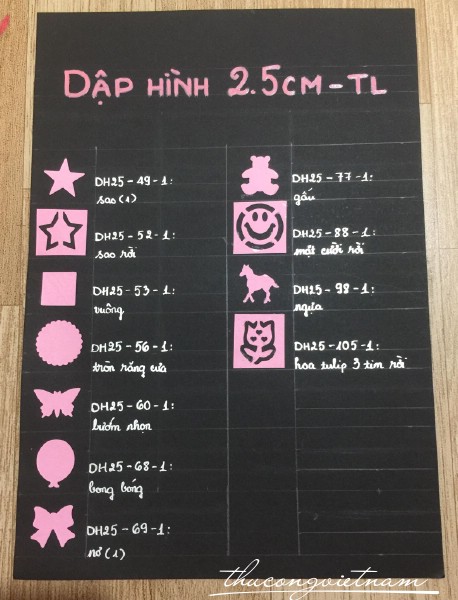 DẬP HÌNH 2.5CM-TL
DH25-49-1:
sao (1)
DH25-52-1:
sao rời
DH25-53-1:
vuông
DH25-56-1:
tròn răng cưa
DH25-60-1:
bướm nhọn
DH25-68-1:
bong bóng
DH25-69-1:
nơ (1)
DH25-77-1:
gấu
DH25-88-1:
mặt cười rời
DH25-98-1:
ngựa
DH25-105-1:
hoa tulip 3 tim rời
thucongvietnam